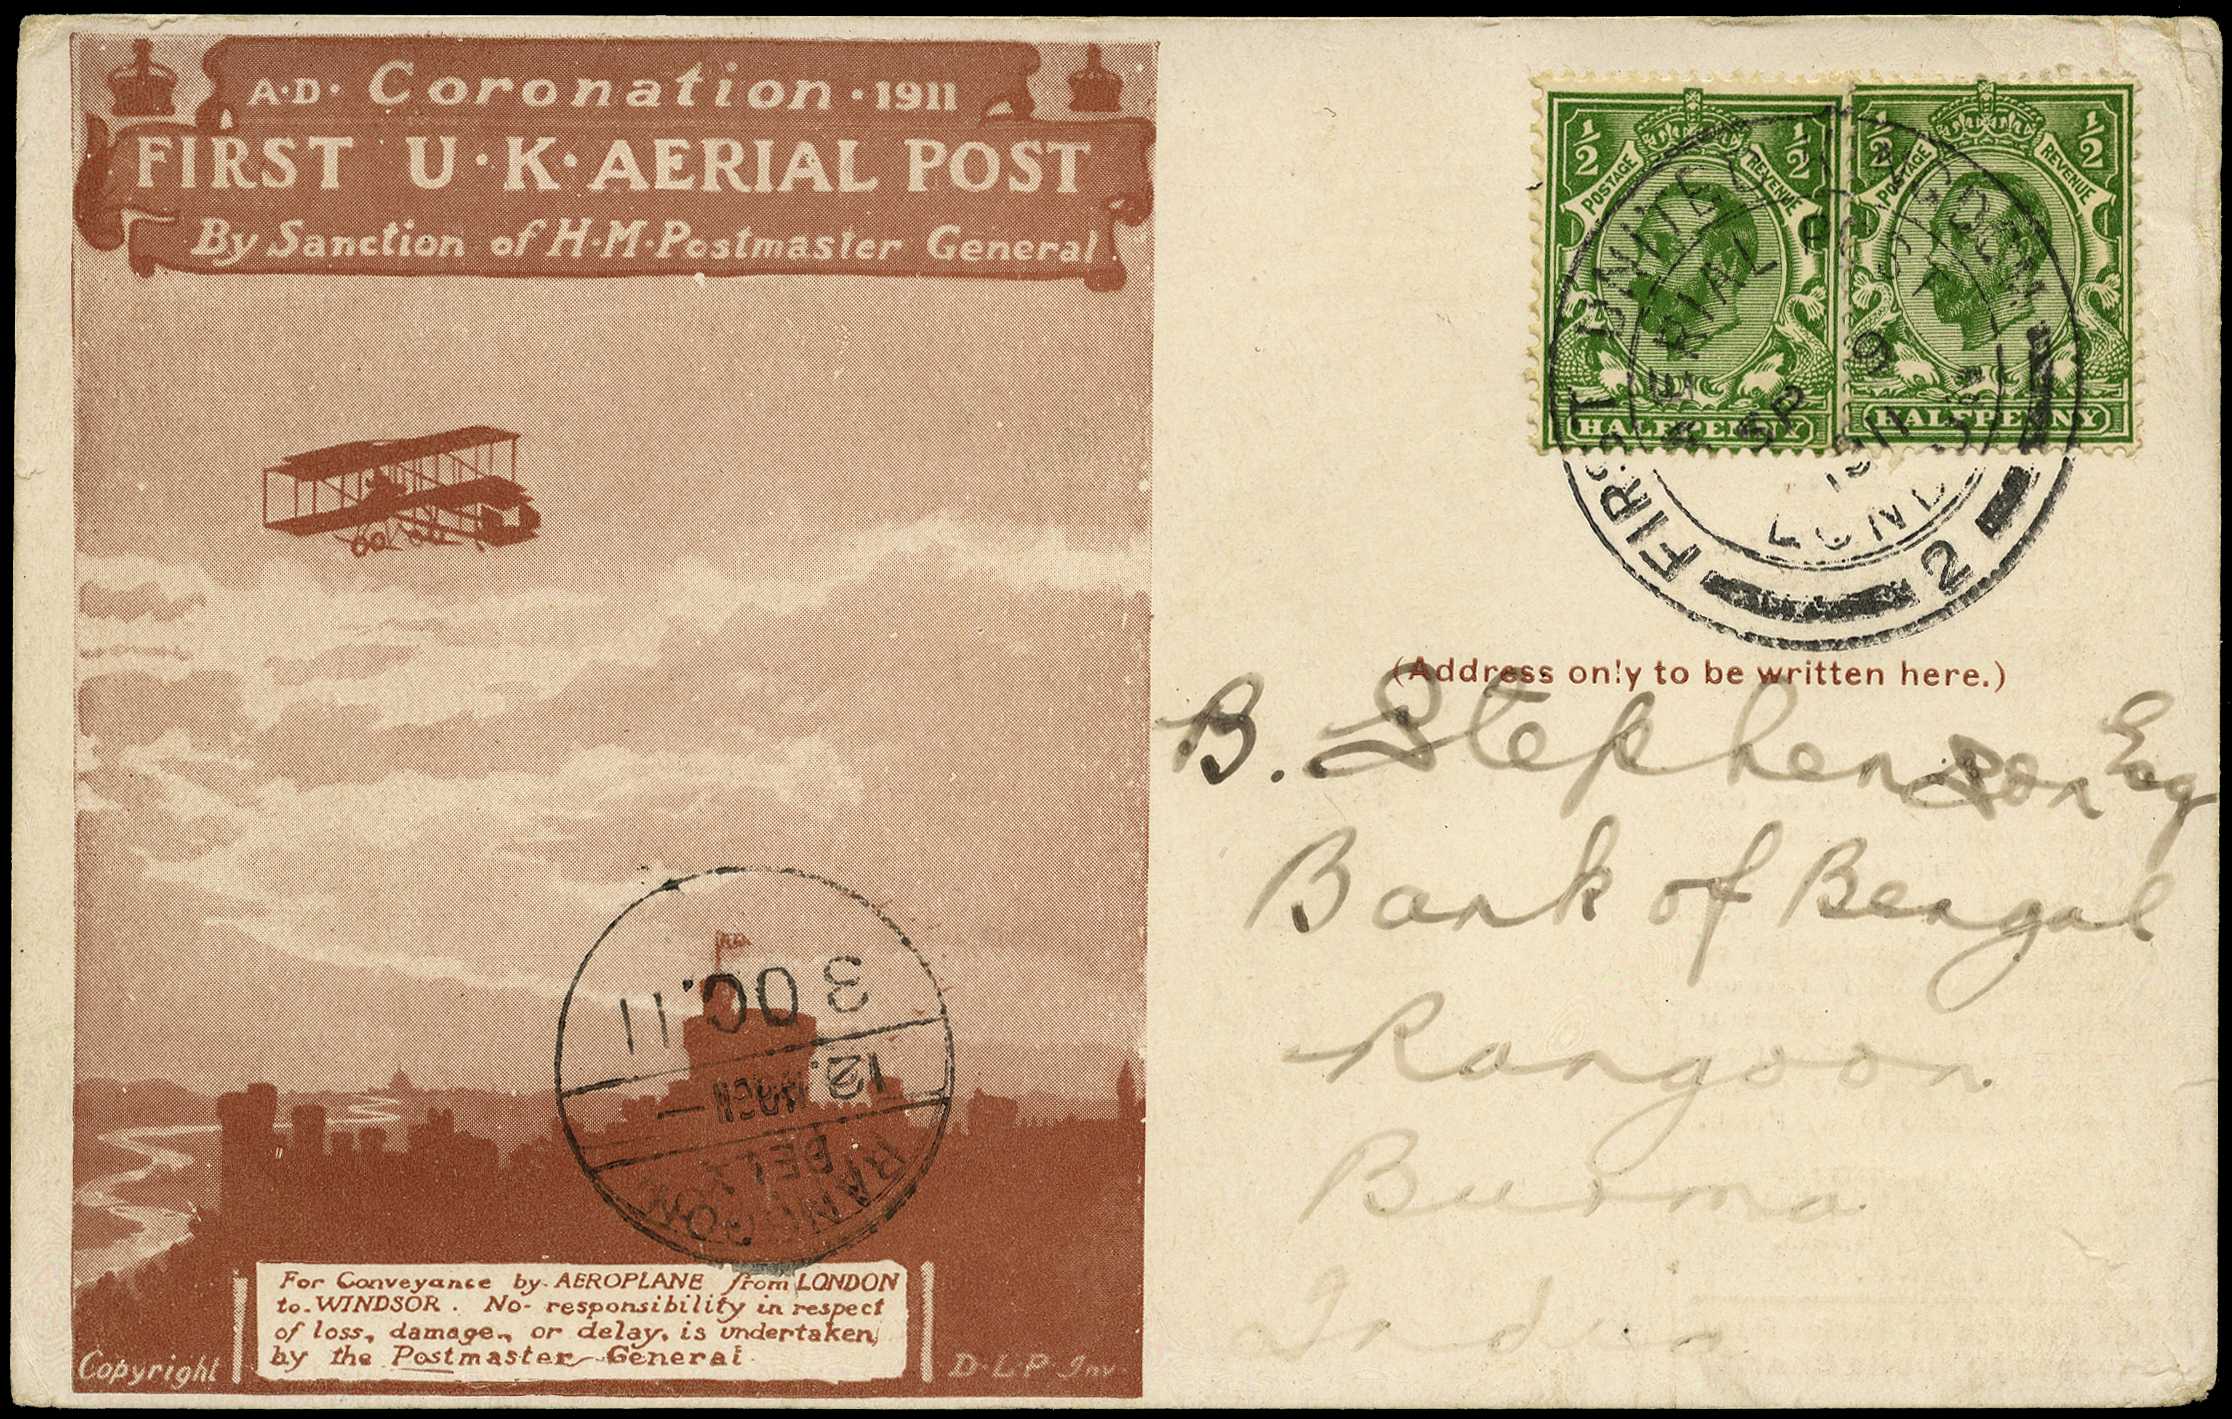 A·D· Coronation · 1911
FIRST U·K·AERIAL POST
By Sanction of H·M·Postmaster General
½ ½
POSTAGE REVENUE
HALFPENNY
½ ½
POSTAGE REVENUE
HALFPENNY
FIRST UNITED KINGDOM
AERIAL POST
SP 9
1911
LONDON
2
(Address only to be written here.)
B. Stephenson Esq
Bank of Bengal
Rangoon.
Burma
India
RANGOON
DELY
12.
3 OC.11
For Conveyance by AEROPLANE from LONDON
to WINDSOR. No responsibility in respect
of loss, damage, or delay, is undertaken
by the Postmaster General
Copyright
D·L·P·Inv